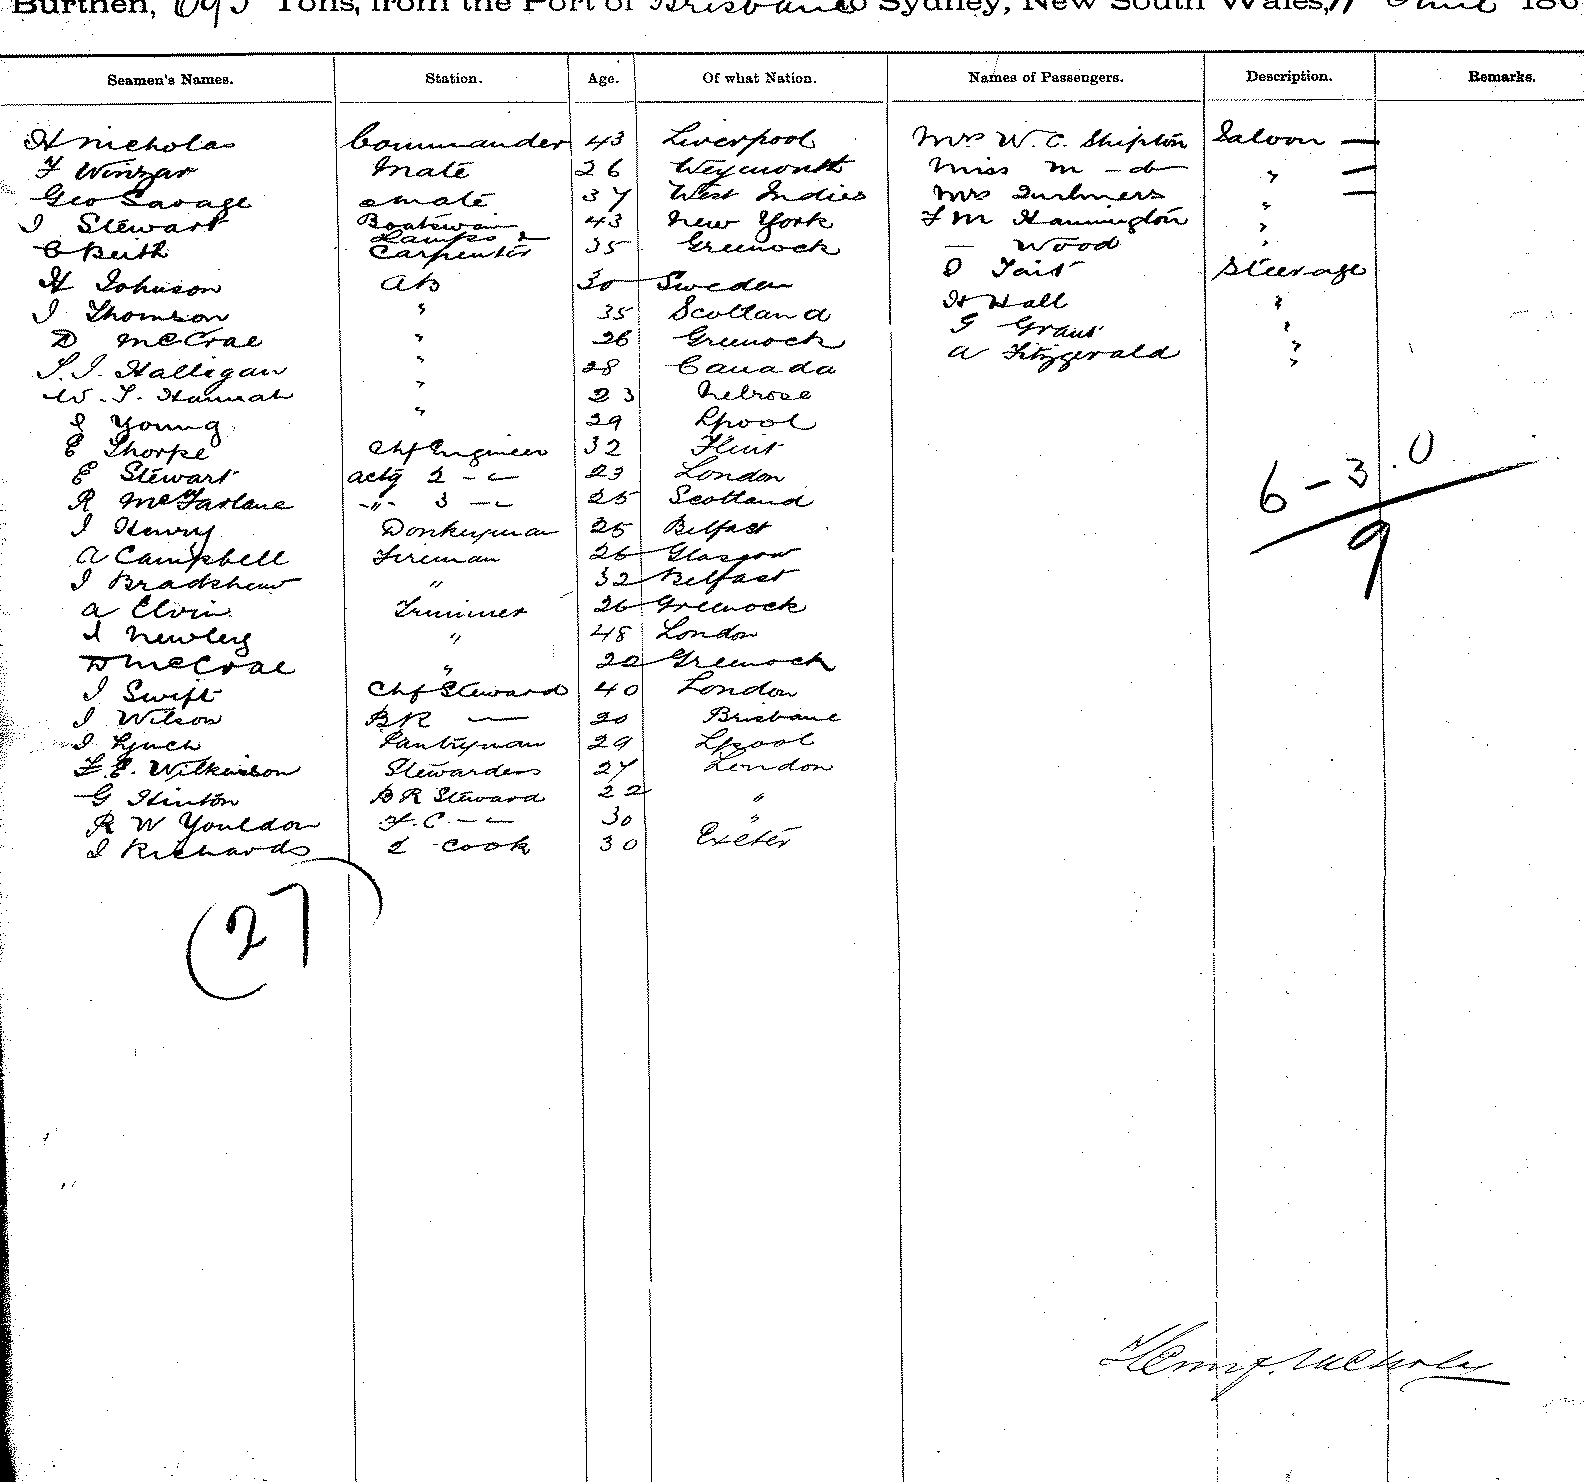 Burthen, 695 Tons, from the Port of Brisbane to Sydney, New South Wales, 186
Seamen's Names. Station. Age. Of what Nation. Names of Passengers. Description. Remarks.
H Nicholas Commander 43 Liverpool Mrs W. C. Shipton Saloon —
F Winzar Mate 26 Weymouth Miss M - do " —
Geo Savage 2 mate 37 West Indies Mrs " —
J Stewart Boatswain 43 New York F M Hannington "
C Beith Lamps & Carpenter 35 Greenock — Wood "
H Johnson AB 30 Sweden D Tait Steerage
J Thomson " 35 Scotland H Hall "
D McCrae " 26 Greenock G Grant "
S. J. Halligan " 28 Canada A Fitzgerald "
W. T. Hannah " 23 Melrose
J Young " 29 Lpool
E Thorpe Chf Engineer 32 Flint
E Stewart actg 2 - - 23 London
R McFarlane -"- 3 - - 25 Scotland
J Henry Donkeyman 25 Belfast
A Campbell Fireman 26 Glasgow
J Bradshaw " 32 Belfast
A Elvin Trimmer 26 Greenock
J Newley " 48 London
D McCrae " 22 Greenock
J Swift Chf Steward 40 London
J Wilson BR — 20 Brisbane
J Lynch Pantryman 29 Lpool
F. E. Wilkinson Stewardess 27 London
G Hinton B R Steward 22 "
R W Youldon F. C. - - 30 "
J Richards 2 Cook 30 Exeter
6 - 3 . 0
9
(27)
Henry Nicholas